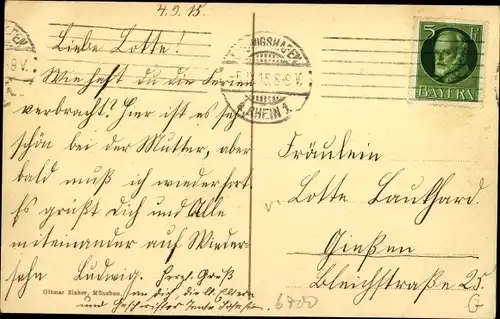 4.9.15.
Liebe Lotte!
Wie hast du die Ferien
verbracht? Hier ist es sehr
schön bei der Mutter, aber
bald muß ich wieder fort.
Es grüßt Dich und Alle
miteinander auf Wieder-
sehn Ludwig. Herzl. Gruß
an Dich, die lb. Eltern
und Geschwister Tante
Ottmar Zieher, München.
LUDWIGSHAFEN
15 8-9 V.
RHEIN 1
5 Pf
BAYERN
Fräulein
Lotte Laukhard.
Gießen
Bleichstraße 25.
6700
G